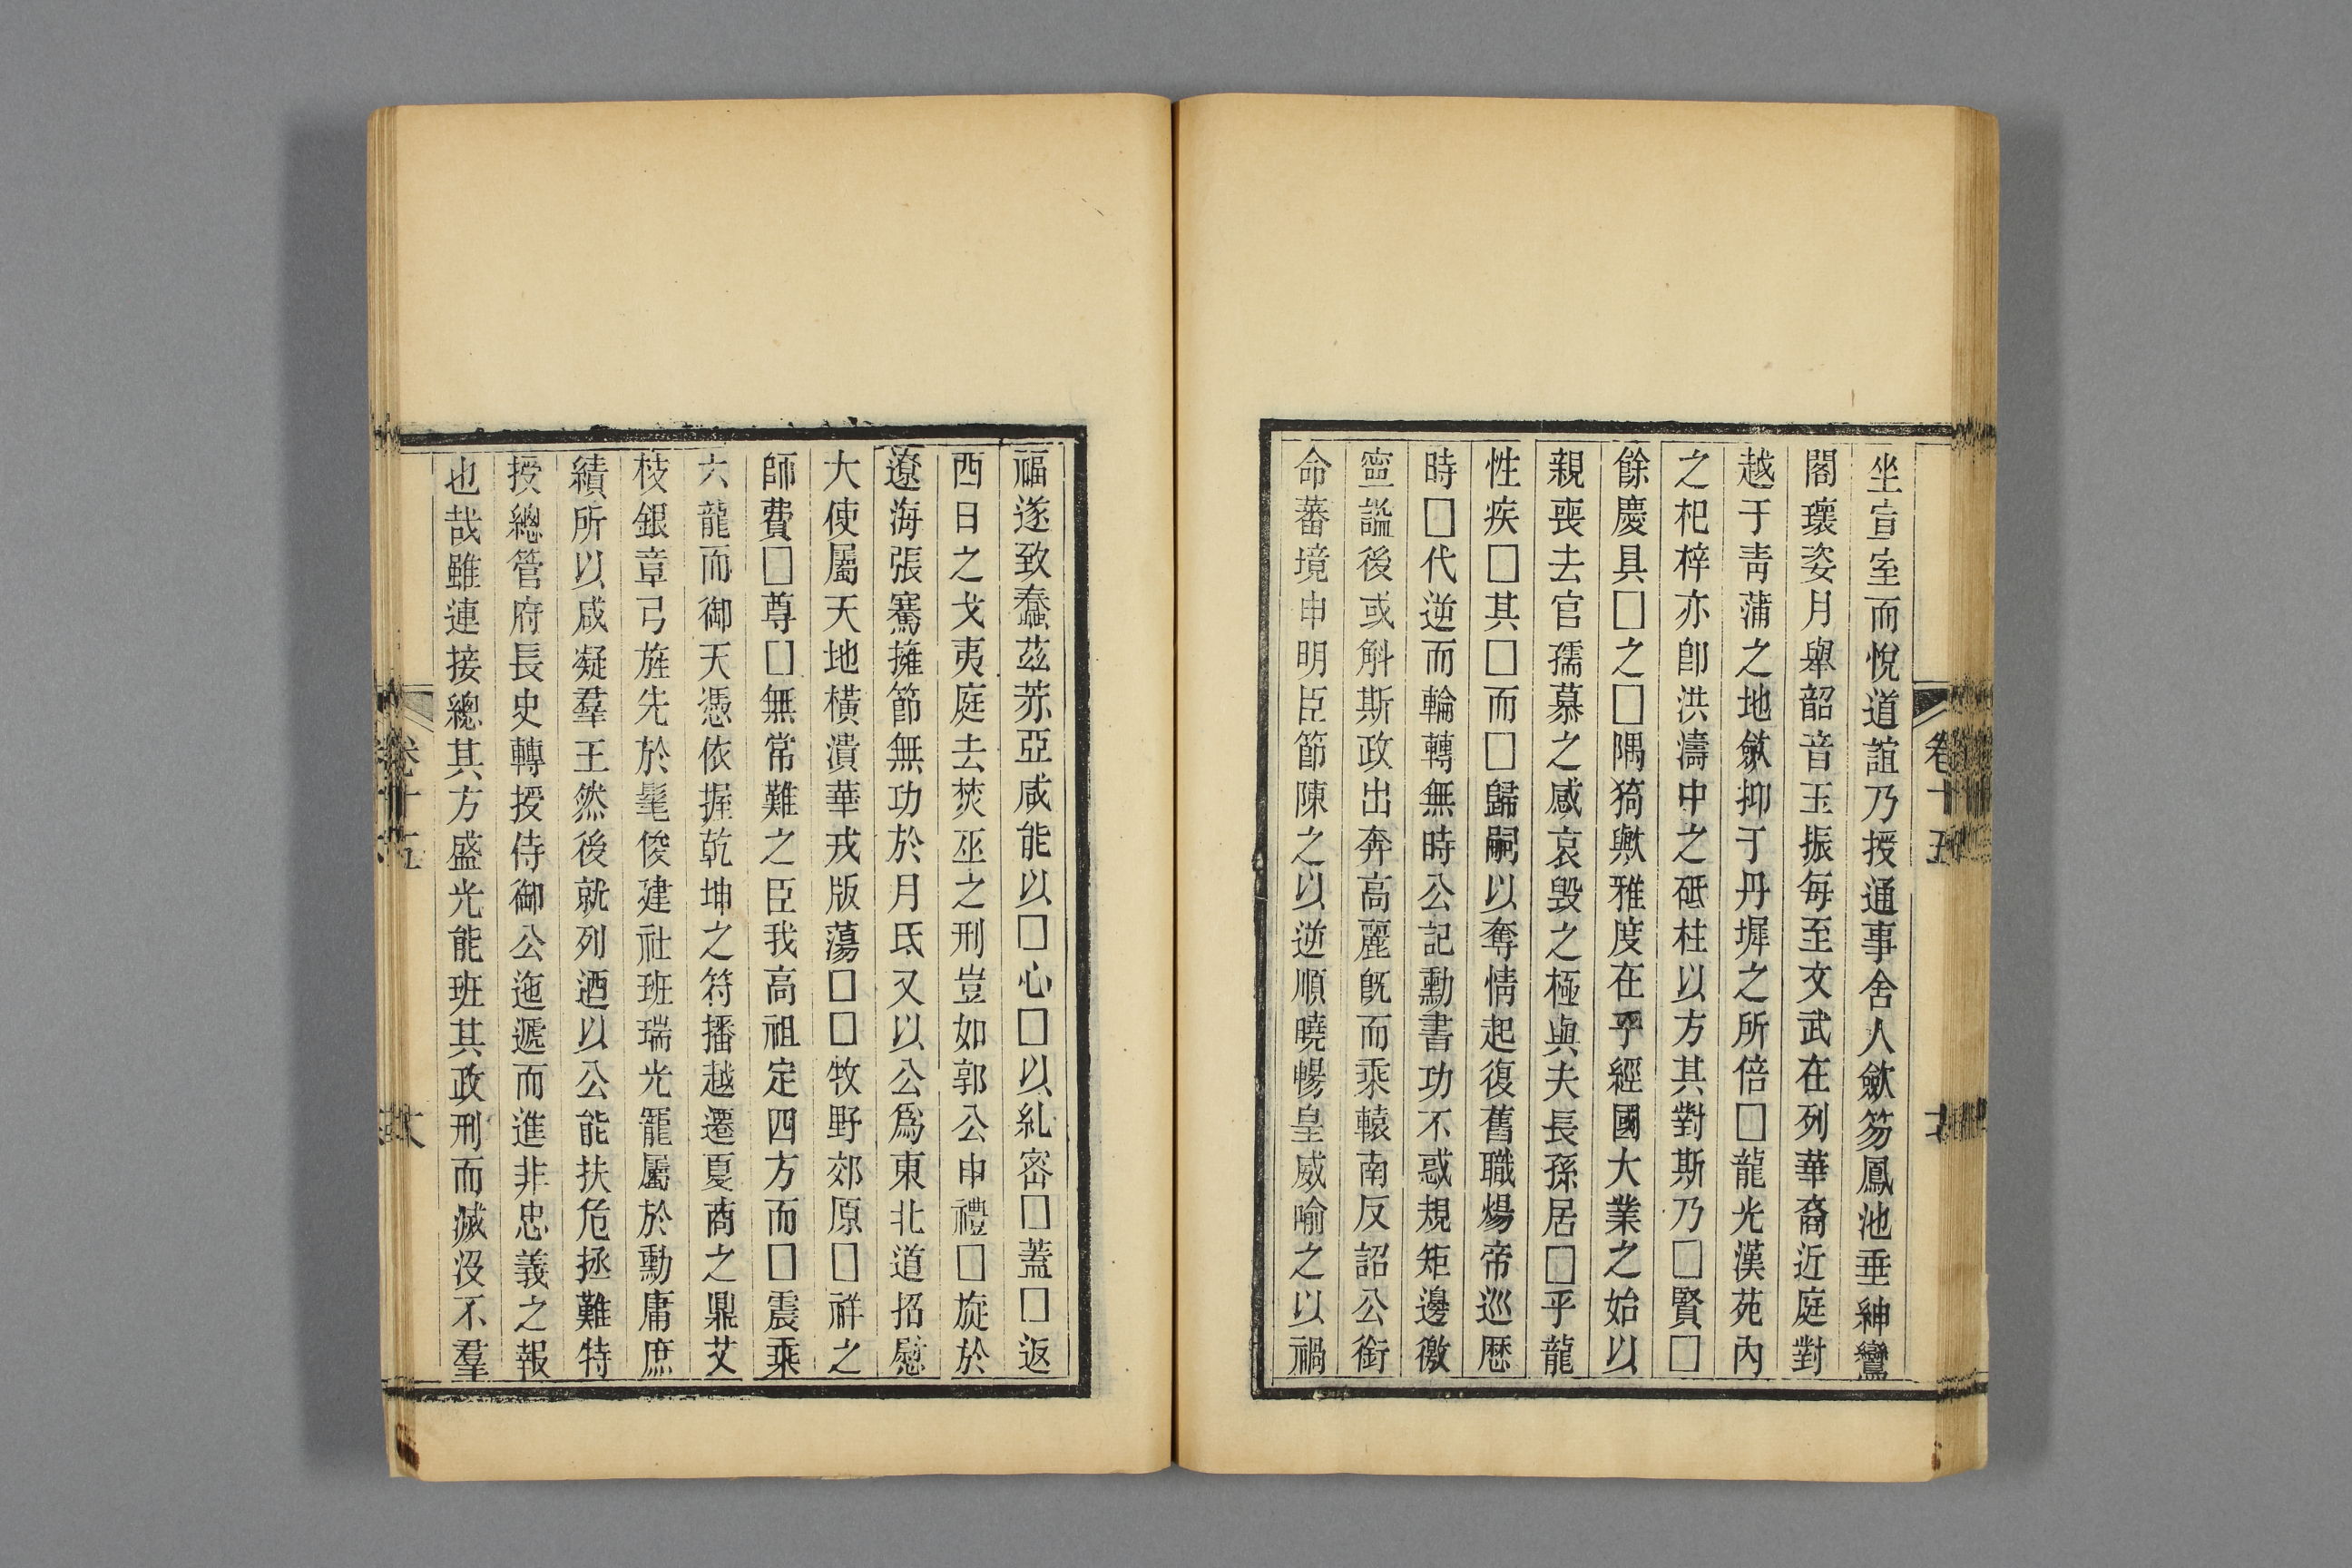 坐宣室而悅道誼乃授通事舍人歛笏鳳池垂紳鸞
閣瓌姿月舉韶音玉振每至文武在列華裔近庭對
越于靑蒲之地斂抑于丹墀之所倍□龍光漢苑內
之杞梓亦卽洪濤中之砥柱以方其對斯乃□賢□
餘慶具□之□隅猗歟雅度在乎經國大業之始以
親喪去官孺慕之感哀毀之極與夫長孫居□乎龍
性疾□其□而□歸嗣以奪情起復舊職煬帝巡歷
時□代逆而輪轉無時公記勳書功不惑規矩邊徼
靈謐後或斛斯政出奔高麗旣而乘轅南反詔公銜
命蕃境申明臣節陳之以逆順曉暢皇威喻之以禍
福遂致蠢茲荞亞咸能以□心□以糺密□蓋□返
西日之戈夷庭去焚巫之刑豈如郭公申禮□旋於
遼海張騫擁節無功於月氐又以公爲東北道招慰
大使屬天地橫潰華戎版蕩□□牧野郊原□祥之
師費□尊□無常難之臣我高祖定四方而□震乘
六龍而御天憑依握乾坤之符播越遷夏商之鼎艾
枝銀章弓旌先於髦俊建社班瑞光寵屬於勳庸庶
績所以咸凝羣王然後就列迺以公能扶危拯難特
授總管府長史轉授侍御公迤遞而進非忠義之報
也哉雖連接總其方盛光能班其政刑而滅沒不羣
卷十五
卷十五